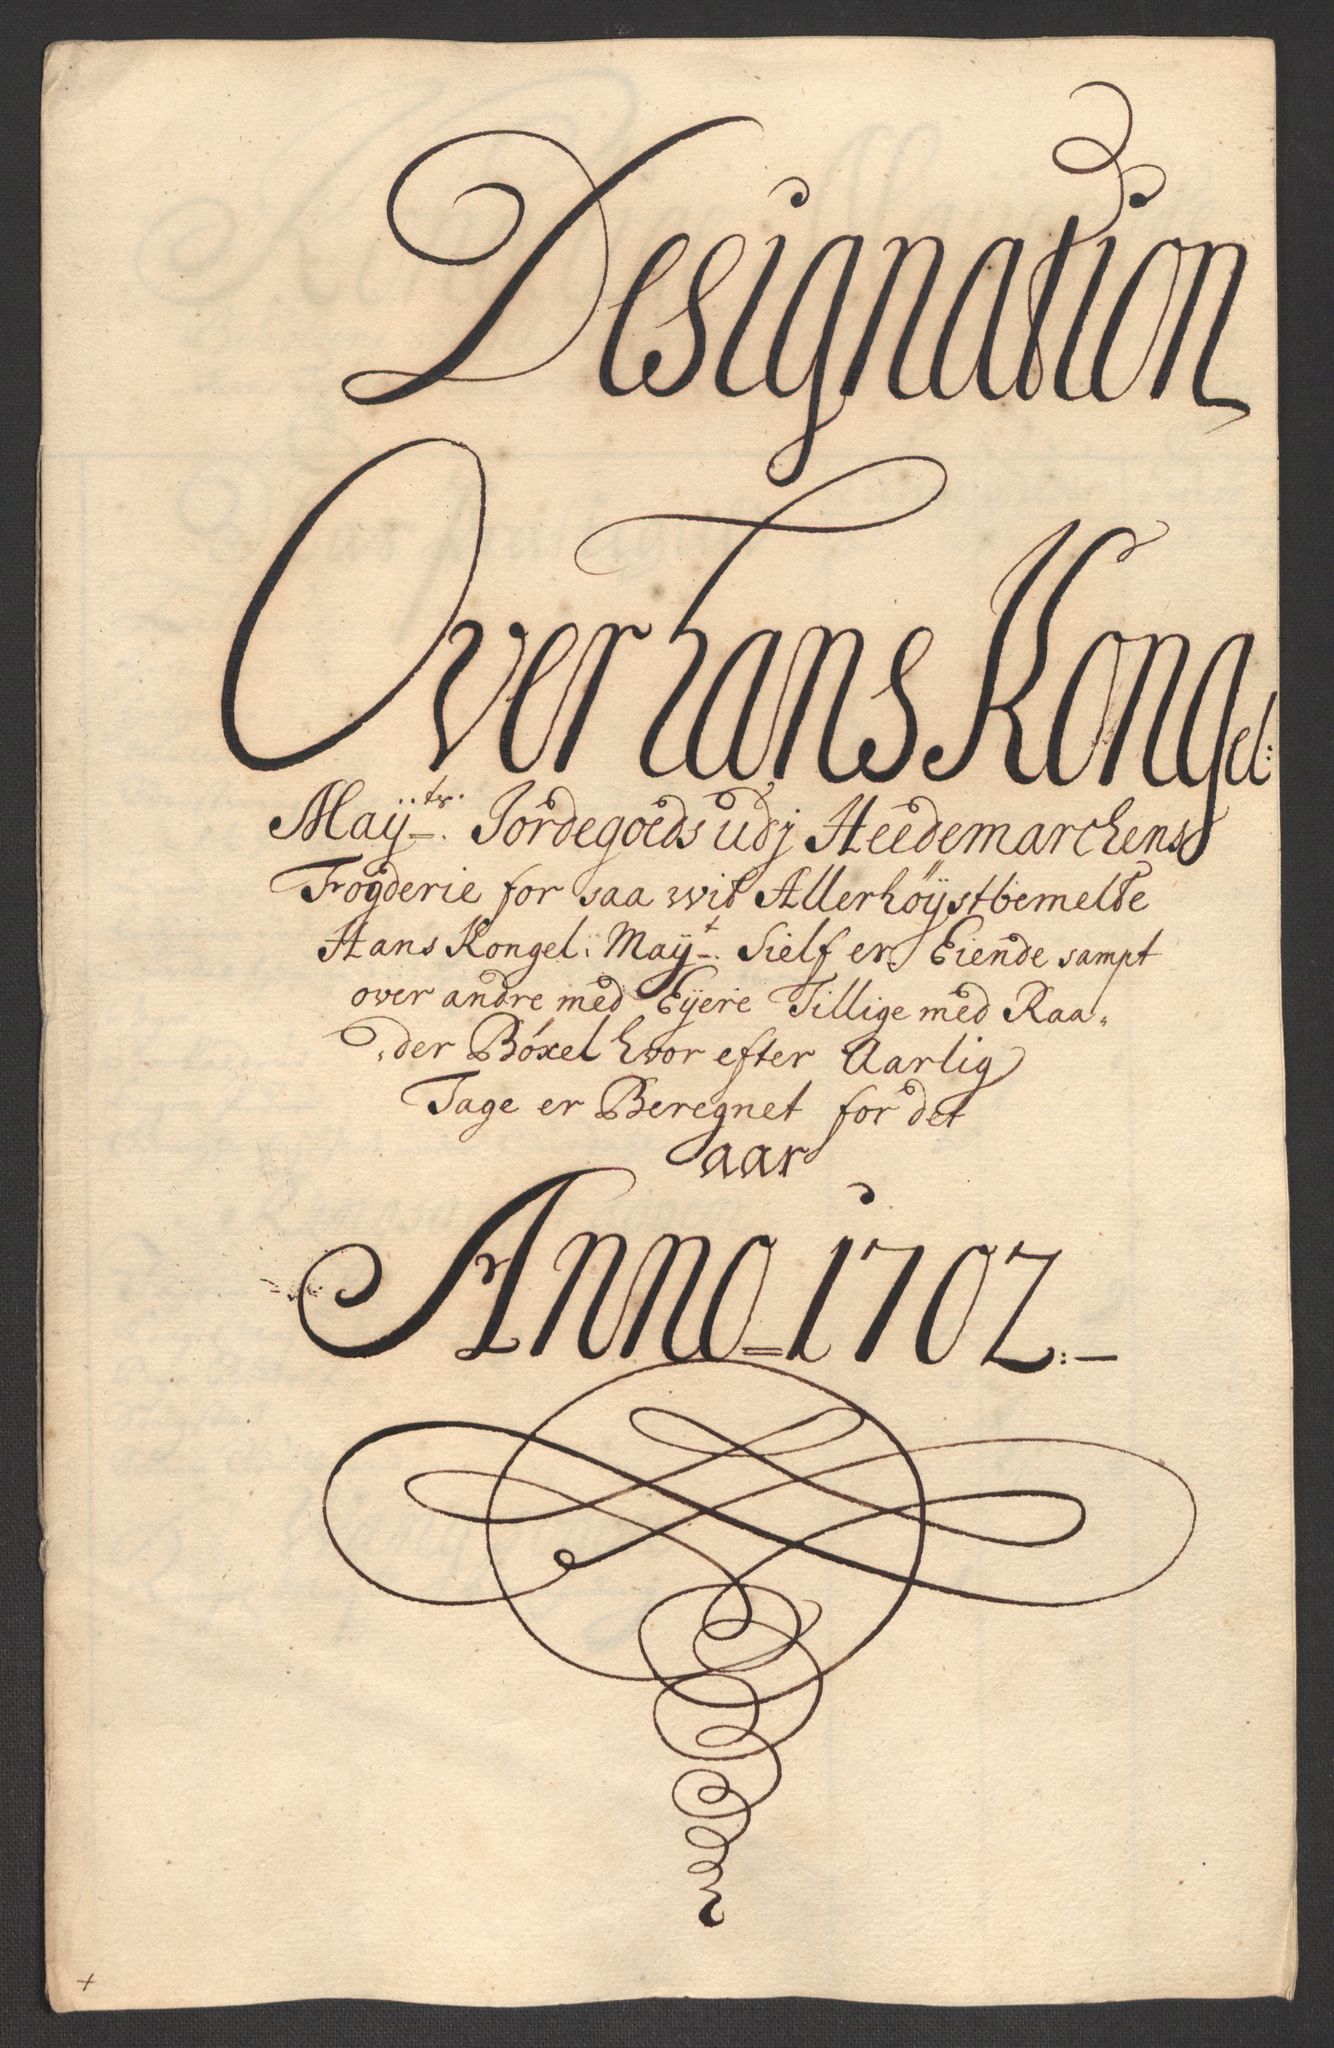 Designation
Over hans Kongel:
Mayts: Jordegoeds udj Heedemarchens
Fogderie for saa wit Allerhöystbemelte
Hans Kongel: Mayt: Sielf er Eiende sampt
over andre med Eyere Tillige med Raa-
der Böxel hvor efter Aarlig
Tage er Beregnet for det
aar
Anno 1702: